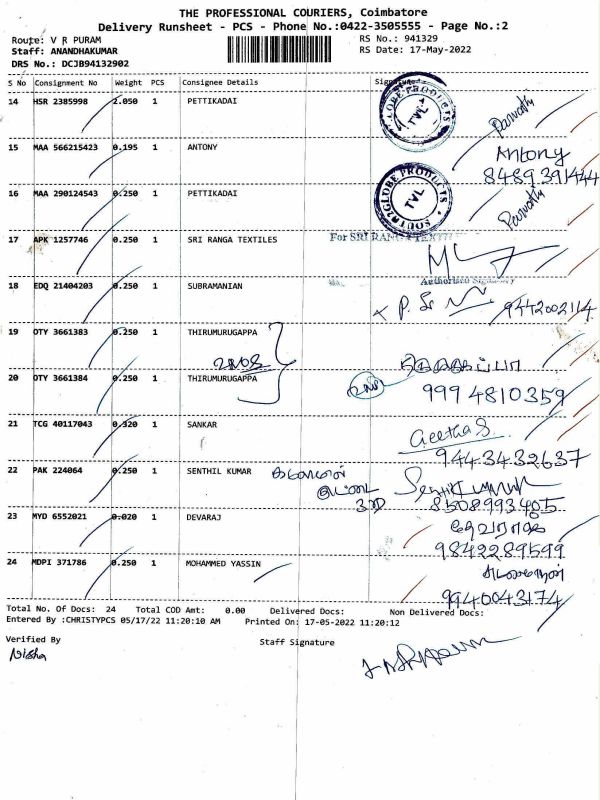 THE PROFESSIONAL COURIERS, Coimbatore
Delivery Runsheet - PCS - Phone No.:0422-3505555 - Page No.:2
Route: V R PURAM
RS No.: 941329
Staff: ANANDHAKUMAR
RS Date: 17-May-2022
DRS No.: DCJB94132902
S No Consignment No Weight PCS Consignee Details Signature
14 HSR 2385998 2.050 1 PETTIKADAI
SOUTH2GLOBE PRODUCTS TVL
15 MAA 566215423 0.195 1 ANTONY Antony
8489391444
16 MAA 290124543 0.250 1 PETTIKADAI
SOUTH2GLOBE PRODUCTS TVL
17 APK 1257746 0.250 1 SRI RANGA TEXTILES For SRI RANGA TEXTILES
Authorised Signatory
18 EDQ 21404203 0.250 1 SUBRAMANIAN
9442002114
19 OTY 3661383 0.250 1 THIRUMURUGAPPA
20 OTY 3661384 0.250 1 THIRUMURUGAPPA 9994810359
21 TCG 40117043 0.320 1 SANKAR Geetha S.
9443432637
22 PAK 224064 0.250 1 SENTHIL KUMAR Senthil Kumar
8508993405
23 MYD 6552021 0.020 1 DEVARAJ தேவராஜ்
9842289599
24 MDPI 371786 0.250 1 MOHAMMED YASSIN
9940043174
Total No. Of Docs: 24 Total COD Amt: 0.00 Delivered Docs: Non Delivered Docs:
Entered By :CHRISTYPCS 05/17/22 11:20:10 AM Printed On: 17-05-2022 11:20:12
Verified By Staff Signature
Nisha